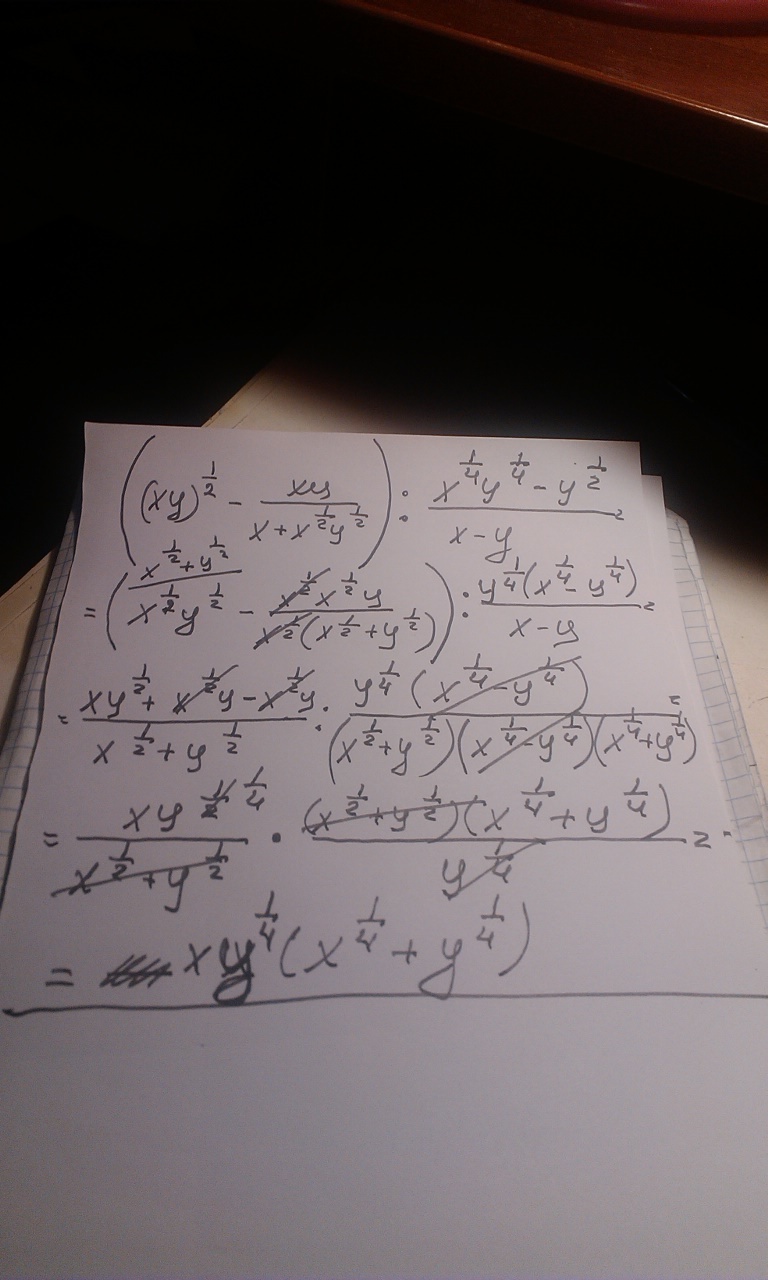 ((xy)^{1/2} - \frac{xy}{x + x^{1/2}y^{1/2}}) : \frac{x^{1/4}y^{1/4} - y^{1/2}}{x - y} =
= (\frac{x^{1/2} + y^{1/2}}{} x^{1/2}y^{1/2} - \frac{x^{1/2}x^{1/2}y}{x^{1/2}(x^{1/2} + y^{1/2})}) : \frac{y^{1/4}(x^{1/4} - y^{1/4})}{x - y} =
= \frac{xy^{1/2} + x^{1/2}y - x^{1/2}y}{x^{1/2} + y^{1/2}} : \frac{y^{1/4}(x^{1/4} - y^{1/4})}{(x^{1/2} + y^{1/2})(x^{1/4} - y^{1/4})(x^{1/4} + y^{1/4})} =
= \frac{xy^{1/2 1/4}}{x^{1/2} + y^{1/2}} \cdot \frac{(x^{1/2} + y^{1/2})(x^{1/4} + y^{1/4})}{y^{1/4}} =
= xy^{1/4}(x^{1/4} + y^{1/4})